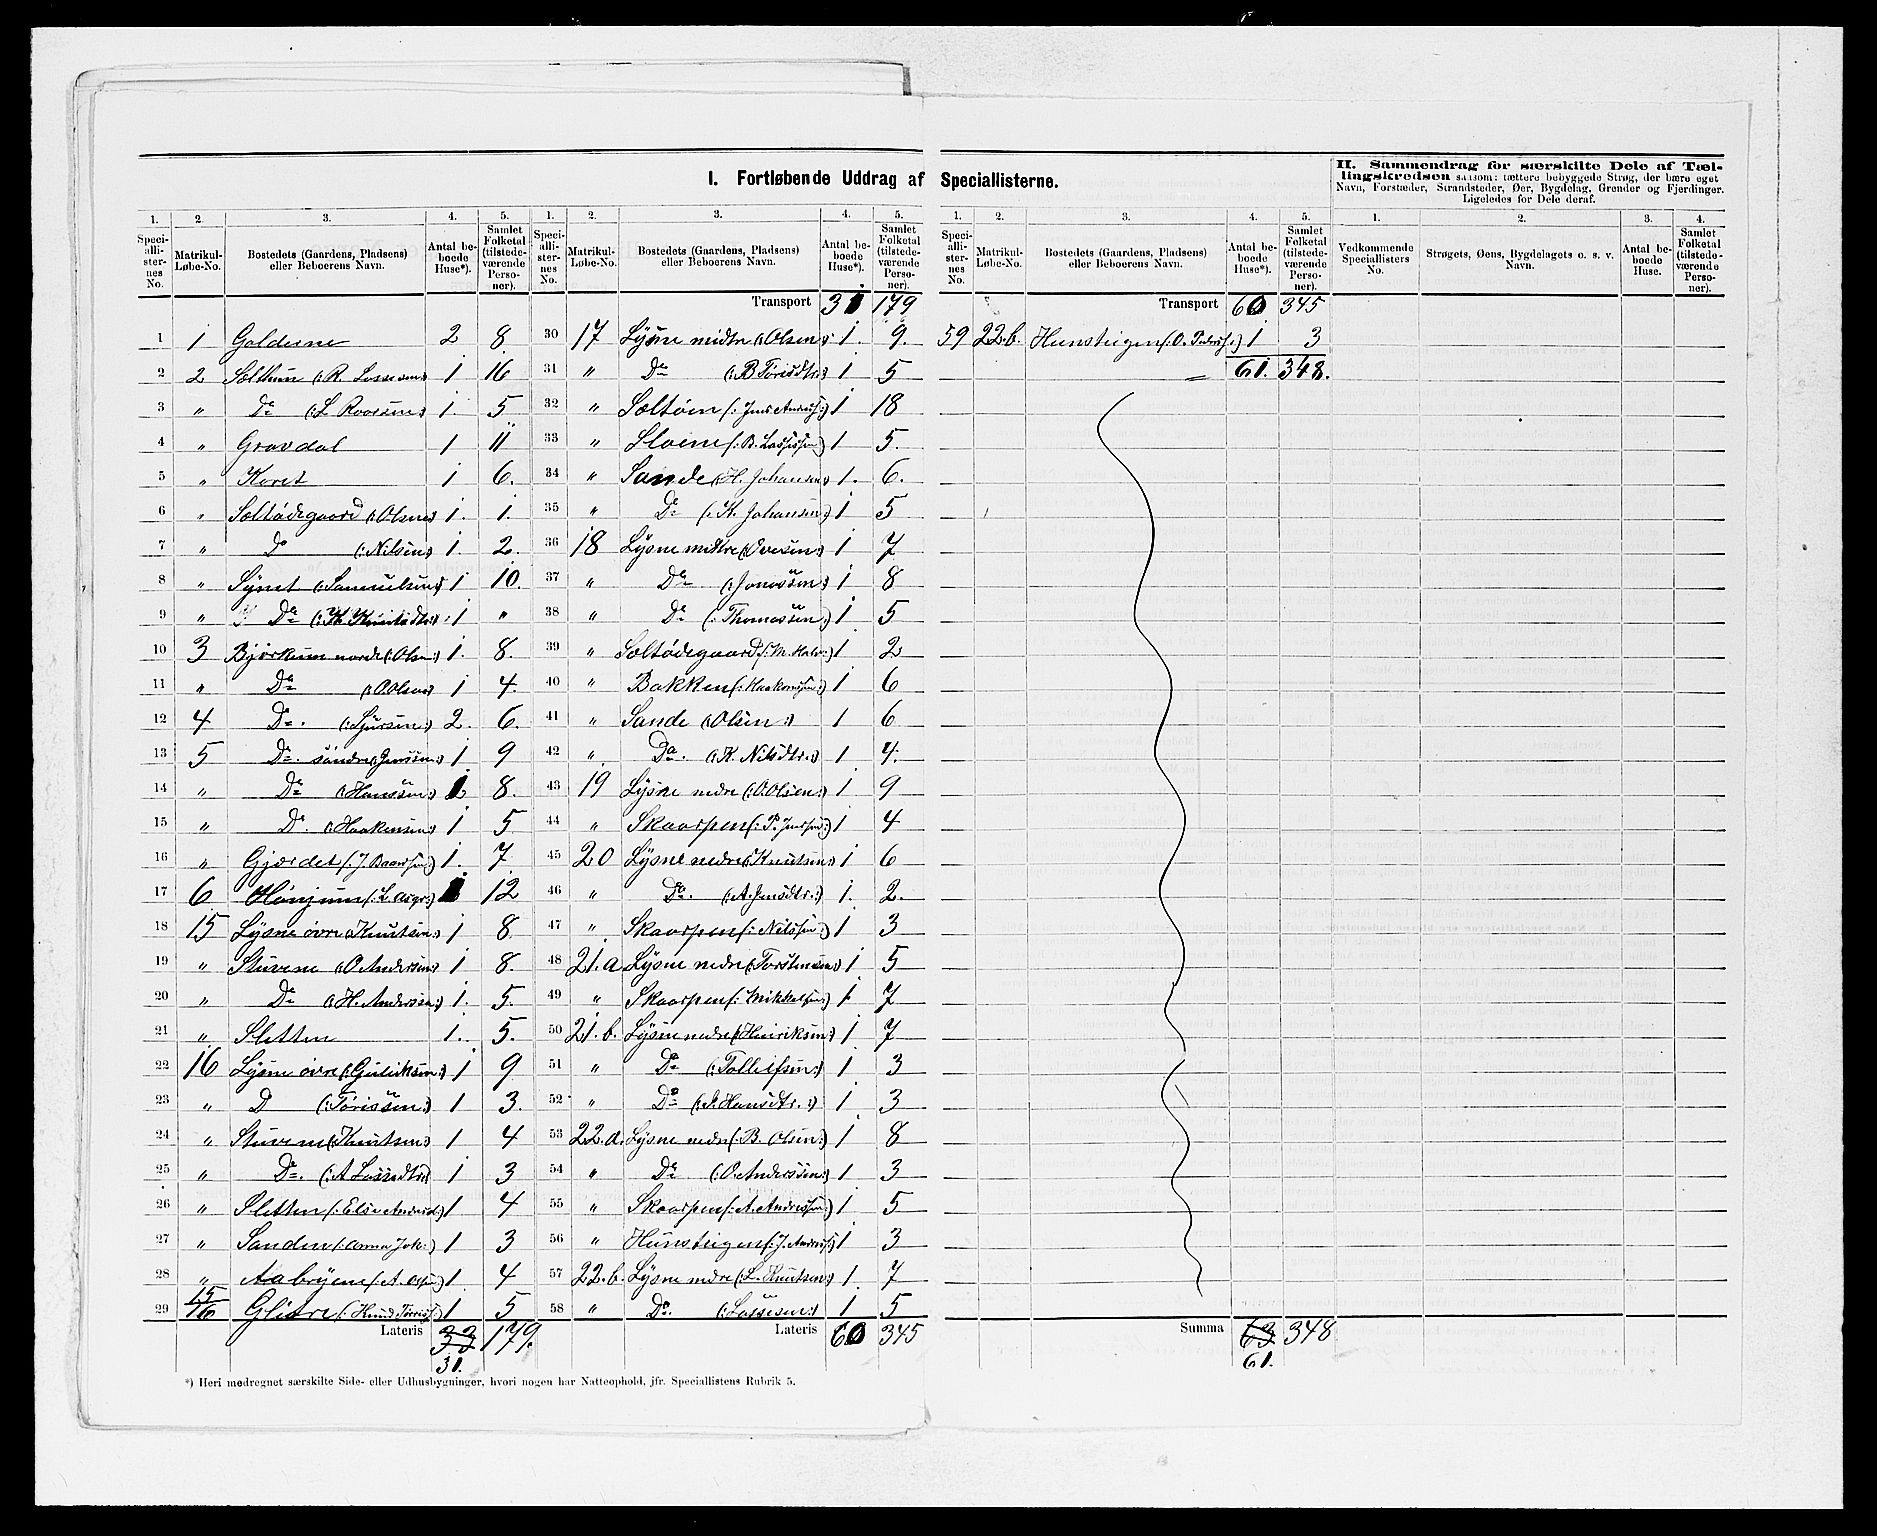 I. Fortløbende Uddrag af Speciallisterne.
II. Sammendrag for særskilte Dele af Tællingskredsen saasom: tættere bebyggede Strøg, der bære eget Navn, Forstæder, Strandsteder, Øer, Bygdelag, Grender og Fjerdinger. Ligeledes for Dele deraf.
1. 2. 3. 4. 5. 1. 2. 3. 4. 5. 1. 2. 3. 4. 5. 1. 2. 3. 4.
Speciallisternes No. Matrikul-Løbe-No. Bostedets (Gaardens, Pladsens) eller Beboerens Navn. Antal beboede Huse*). Samlet Folketal (tilstedeværende Personer).
1 1 Golderne 2 8.
2 2 Sælthun (: R. Lassesen:) 1 16
3 " Do (: L. Roarsen:) 1. 5
4 " Gravdal 1 11
5 " Koret 1 6.
6 " Sæltødegaard (: Olsen:) 1. 1.
7 " Do (: Nilsen:) 1. 2.
8 " Synet (: Samuelsen:) 1 10.
9 " Do (: K. Knutsdtr:) 1 "
10 3 Bjørkum nordre (: Olsen:) 1. 8.
11 " Do (: O Olsen:) 1 4.
12 4 Do. (: Sjursen:) 2. 6.
13 5 Do. søndre (: Jenssen:) 1. 9
14 " Do (: Hanssen:) 8.
15 " Do. (: Haakensen:) 1 5
16 " Gjærdet (: J. Baardsen:) 1. 7
17 6 Hønjum (: L. Asgr:) 12
18 15 Lysne øvre (: Knutsen:) 1 8
19 " Stuvene (: O Andersen:) 1 8.
20 " Do (: H. Andersen:) 1. 5.
21 " Sletten 1. 5.
22 16 Lysne øvre (: Guliksen:) 1 9
23 " D (: Tørissen:) 1 3.
24 " Stuvene (: Knutsen:) 1 4
25 " Do. (: A Lassedtr:) 1 3
26 " Sletten (: Else Andersd:) 1 4
27 " Sanden (: Anna Joh:) 1 3
28 " Aabryene (: A. :) 1. 4
29 15/16 Glitre (: :) 1 5
Lateris 33 179.
31.
Transport 31 179
30 17 Lysne midtre (: Olsen:) 1. 9.
31 " Do (: B Tørisdtr:) 1 5
32 " Sæltøen (: Jens Anders:) 1 18
33 " Sloene (: B. Lassessen:) 1 5.
34 " Sande (: H. Johansen:) 1. 6.
35 " Do (: K. Johansen:) 1 5
36 18 Lysne midtre (: Iversen:) 1 7
37 " Do (: Jonassen:) 1 8
38 " Do (: Thomassen:) 1 5
39 " Sæltødegaard (: M. Halv:) 1 2
40 " Bakken (: Haakonssen:) 1 6
41 " Sande (: Olsen:) 1 6
42 " Do. (: K. Nilsdtr:) 1 4.
43 19 Lysne nedre (: O. Olsen:) 1 9
44 " Skaarpen (: P. Jenssen:) 1 4
45 20 Lysne nedre (: Knutsen:) 1 6
46 " Do. (: A. Jensdtr.:) 1. 2.
47 " Skaarpen (: Nilssen:) 1 3
48 21. a Lysne nedre (: Torstensen:) 1. 5
49 " Skaarpen (: Mikkelsen:) 1. 7
50 21. b. Lysne nedre (: Henriksen:) 1. 7
51 " Do (: Tolleifsen:) 1 3
52 " Do (: S. Hansdtr.:) 1 3
53 22. a. Lysne nedre (: B. Olsen:) 1 8
54 " Do (: O. Anderssen:) 1 3
55 " Skaarpen (: A. Anderssen:) 1 5
56 " Hunstegen (: J. Anders:) 1 3
57 22. b. Lysne nedre (: L. Knutsen:) 1. 7
58 " Do. (: Lassesen:) 1 5
Lateris 60 345
Transport 60 345
59 22. b. Hunstegen (: O. Peders:) 1 3
61. 348.
Summa 63 348
61.
Vedkommende Speciallisters No. Strøgets, Øens, Bygdelagets o. s. v. Navn. Antal beboede Huse. Samlet Folketal (tilstedeværende Personer).
*) Heri medregnet særskilte Side- eller Udhusbygninger, hvori nogen har Natteophold, jfr. Speciallistens Rubrik 5.